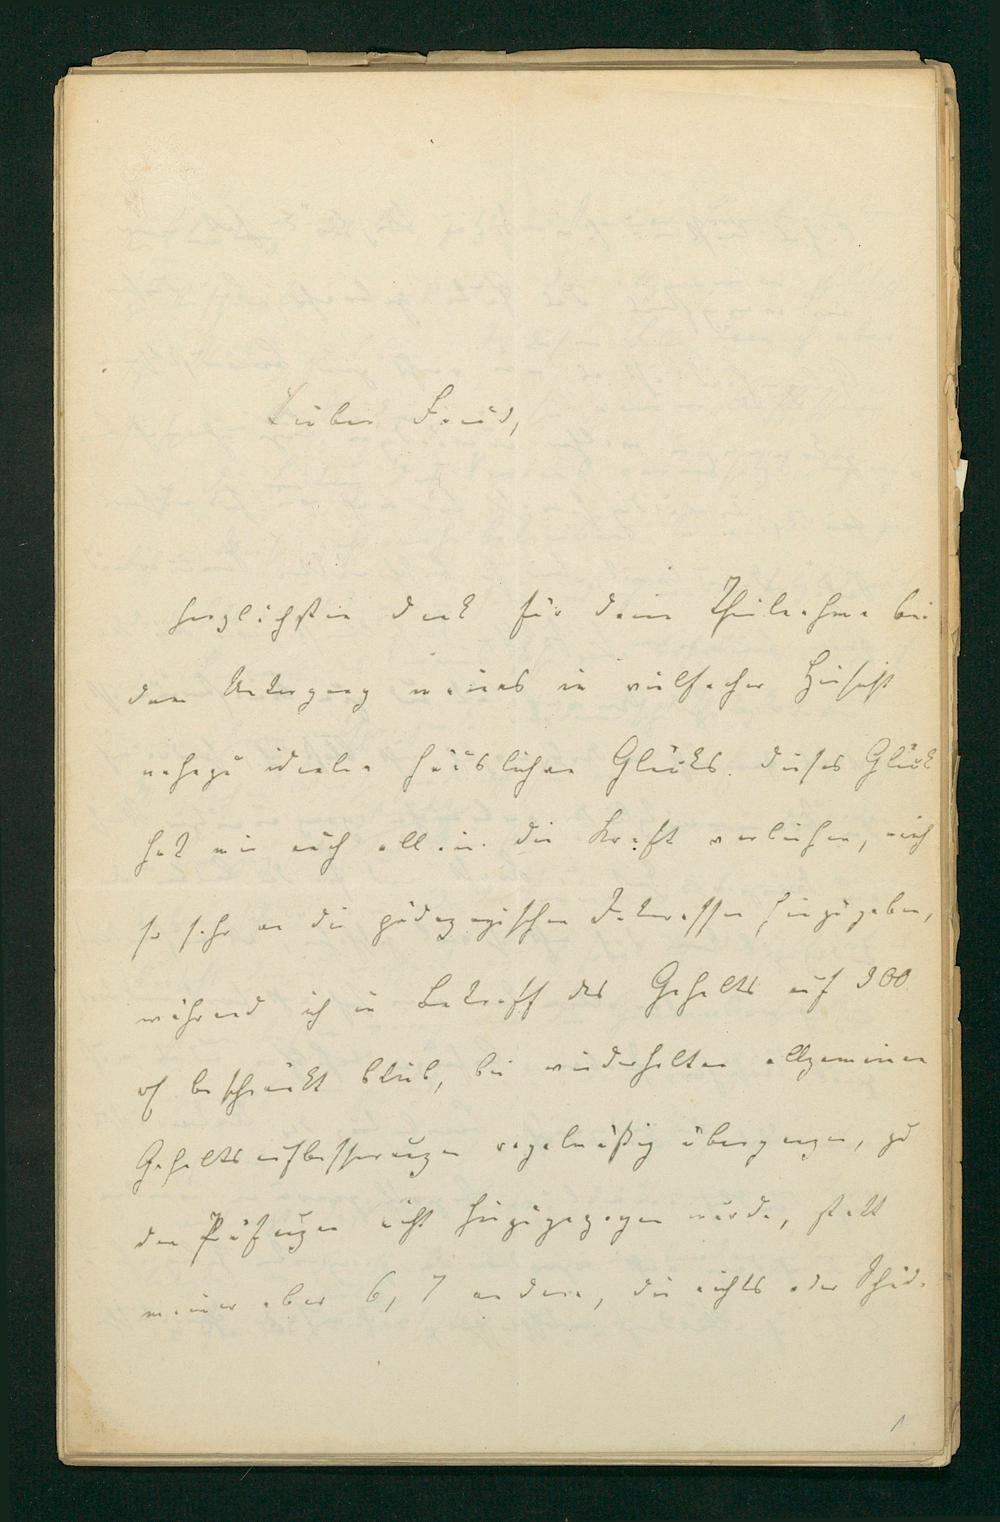 Lieber Freund,
herzlichsten Dank für deine Theilnahme bei
dem Untergang meines in vielfacher Hinsicht
nahezu idealen häuslichen Glücks. Dieses Glück
hat mir auch allein die Kraft verliehen, mich
so sehr an die pädagogischen Interessen hinzugeben,
während ich in Betreff des Gehalts auf 300
beschränkt blieb, bei wiederholten allgemeinen
Gehaltsaufbesserungen regelmäßig übergangen, zu
den Prüfungen nicht hinzugezogen wurde, statt
meiner aber 6, 7 andere, die nichts oder
1